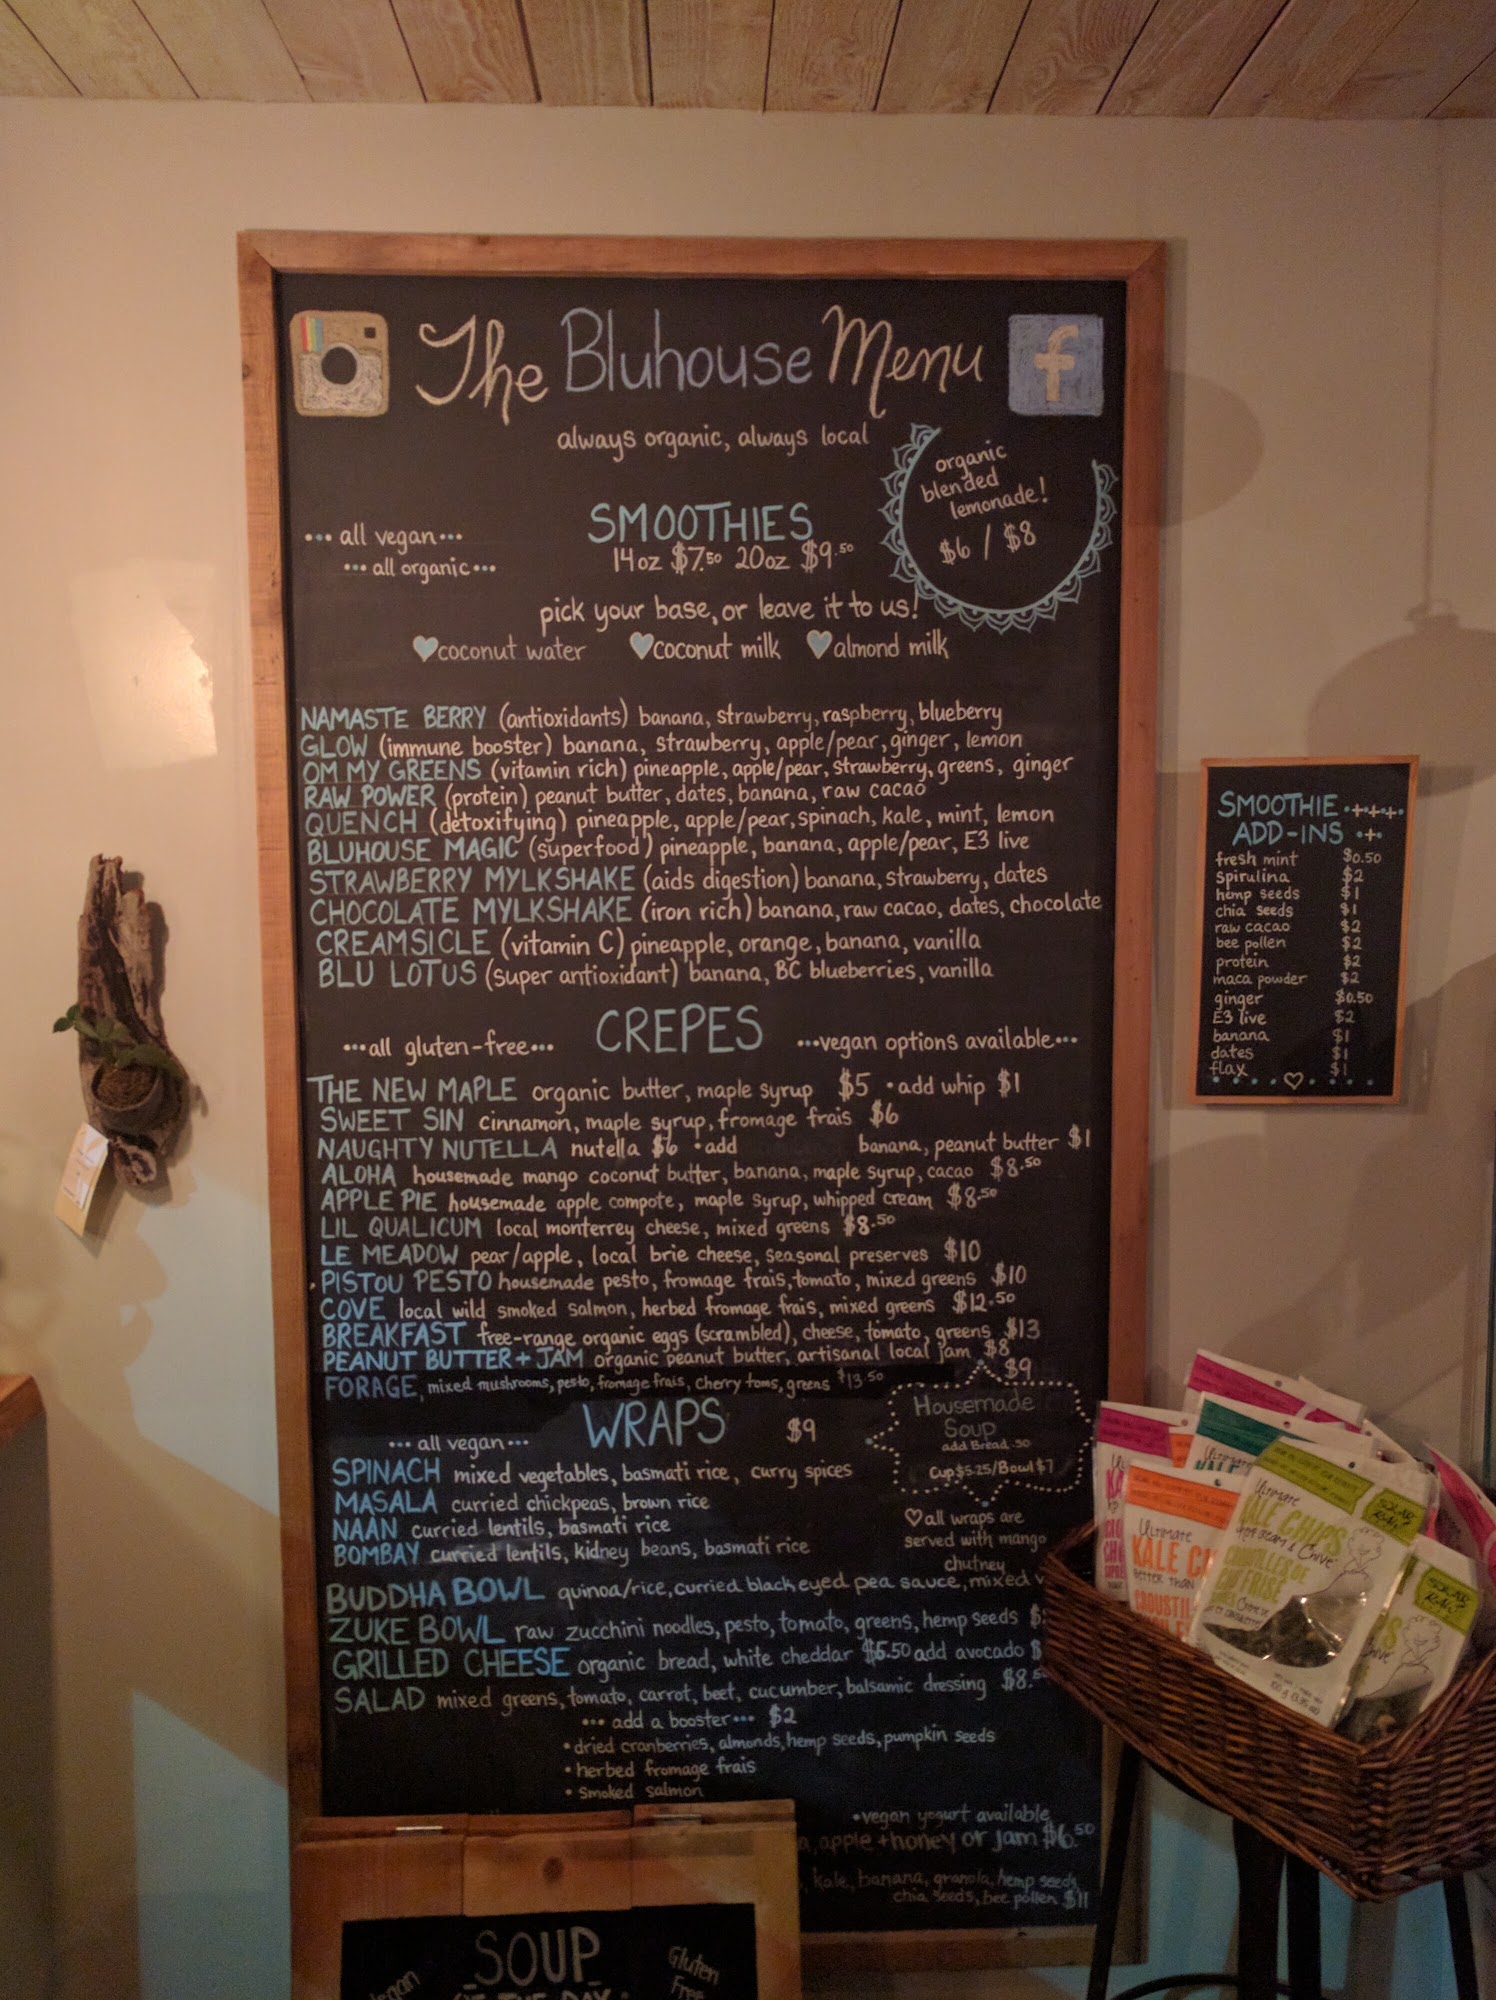 The Bluhouse Menu
always organic, always local
organic
blended
lemonade!
$6 / $8
••• all vegan •••
••• all organic •••
SMOOTHIES
14oz $7.50 20oz $9.50
pick your base, or leave it to us!
coconut water coconut milk almond milk
NAMASTE BERRY (antioxidants) banana, strawberry, raspberry, blueberry
GLOW (immune booster) banana, strawberry, apple/pear, ginger, lemon
OM MY GREENS (vitamin rich) pineapple, apple/pear, strawberry, greens, ginger
RAW POWER (protein) peanut butter, dates, banana, raw cacao
QUENCH (detoxifying) pineapple, apple/pear, spinach, kale, mint, lemon
BLUHOUSE MAGIC (superfood) pineapple, banana, apple/pear, E3 live
STRAWBERRY MYLKSHAKE (aids digestion) banana, strawberry, dates
CHOCOLATE MYLKSHAKE (iron rich) banana, raw cacao, dates, chocolate
CREAMSICLE (vitamin C) pineapple, orange, banana, vanilla
BLU LOTUS (super antioxidant) banana, BC blueberries, vanilla
•••all gluten-free••• CREPES •••vegan options available•••
THE NEW MAPLE organic butter, maple syrup $5 •add whip $1
SWEET SIN cinnamon, maple syrup, fromage frais $6
NAUGHTY NUTELLA nutella $6 •add banana, peanut butter $1
ALOHA housemade mango coconut butter, banana, maple syrup, cacao $8.50
APPLE PIE housemade apple compote, maple syrup, whipped cream $8.50
LIL QUALICUM local monterrey cheese, mixed greens $8.50
LE MEADOW pear/apple, local brie cheese, seasonal preserves $10
PISTOU PESTO housemade pesto, fromage frais, tomato, mixed greens $10
COVE local wild smoked salmon, herbed fromage frais, mixed greens $12.50
BREAKFAST free-range organic eggs (scrambled), cheese, tomato, greens $13
PEANUT BUTTER + JAM organic peanut butter, artisanal local jam $8
$9
FORAGE, mixed mushrooms, pesto, fromage frais, cherry toms, greens $13.50
••• all vegan ••• WRAPS $9
Housemade
Soup
add Bread .50
Cup $5.25/Bowl $7
SPINACH mixed vegetables, basmati rice, curry spices
MASALA curried chickpeas, brown rice
NAAN curried lentils, basmati rice
BOMBAY curried lentils, kidney beans, basmati rice
all wraps are
served with mango
chutney
BUDDHA BOWL quinoa/rice, curried black eyed pea sauce, mixed
ZUKE BOWL raw zucchini noodles, pesto, tomato, greens, hemp seeds $
GRILLED CHEESE organic bread, white cheddar $6.50 add avocado $
SALAD mixed greens, tomato, carrot, beet, cucumber, balsamic dressing $8.50
••• add a booster ••• $2
•dried cranberries, almonds, hemp seeds, pumpkin seeds
•herbed fromage frais
•smoked salmon
•vegan yogurt available
apple + honey or jam $6.50
kale, banana, granola, hemp seeds,
chia seeds, bee pollen $11
SOUP
OF THE DAY
Gluten
Free
SMOOTHIE
ADD-INS
fresh mint $0.50
spirulina $2
hemp seeds $1
chia seeds $1
raw cacao $2
bee pollen $2
protein $2
maca powder $2
ginger $0.50
E3 live $2
banana $1
dates $1
flax $1
Ultimate
KALE CHIPS
Ultimate
SOLAR
RAW